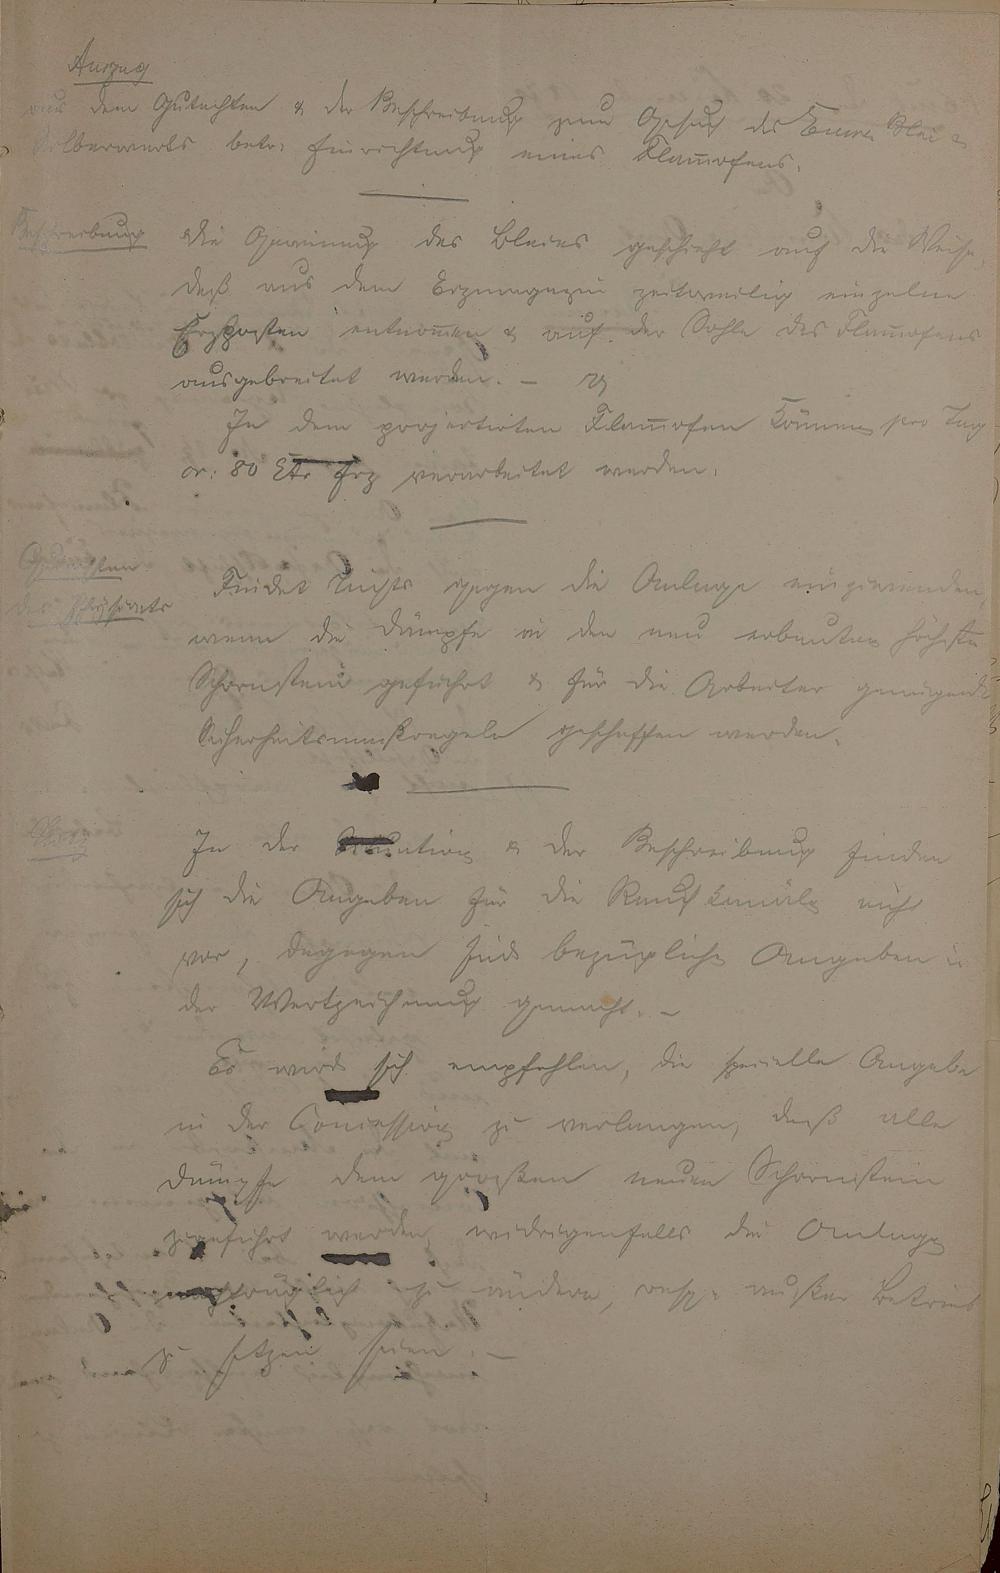 Auszug
aus dem Gutachten & der Beschreibung zum Gesuch des Emser Blei &
Silberwerks betr. Einrichtung eines Flam̅ofens.
Beschreibung
Die Gewinnung des Bleies geschieht auf die Weise,
daß aus dem Erzmagazin zeitweilig einzelne
Erzposten entnom̅en & auf der Sohle des Flam̅ofens
ausgebreitet werden. –
In dem projectirten Flam̅ofen können pro Tag
cr. 80 Ctr Erz verarbeitet werden.
Gutachten
des Physicats
Findet nichts gegen die Anlage einzuwenden,
wenn die Dämpfe in den neu erbauten höchsten
Schornstein geführt & für die Arbeiter genügende
Sicherheitsmaßregeln geschaffen werden.
In der Situation & der Beschreibung finden
sich die Angaben für die Rauchkanäle nicht
vor, dagegen sind bezügliche Angaben in
der Werkzeichnung gemacht. –
Es wird sich empfehlen, die specielle Angabe
in der Concession zu verlangen, daß alle
Dämpfe dem großen neuen Schornstein
zugeführt werden widrigenfalls die Anlage
zu ändern, resp. außer Betrieb
zu setzen seien. –